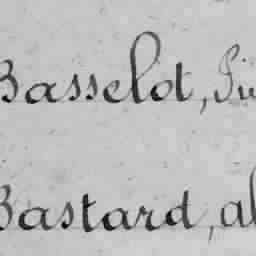 Basselot,
Bastard, al